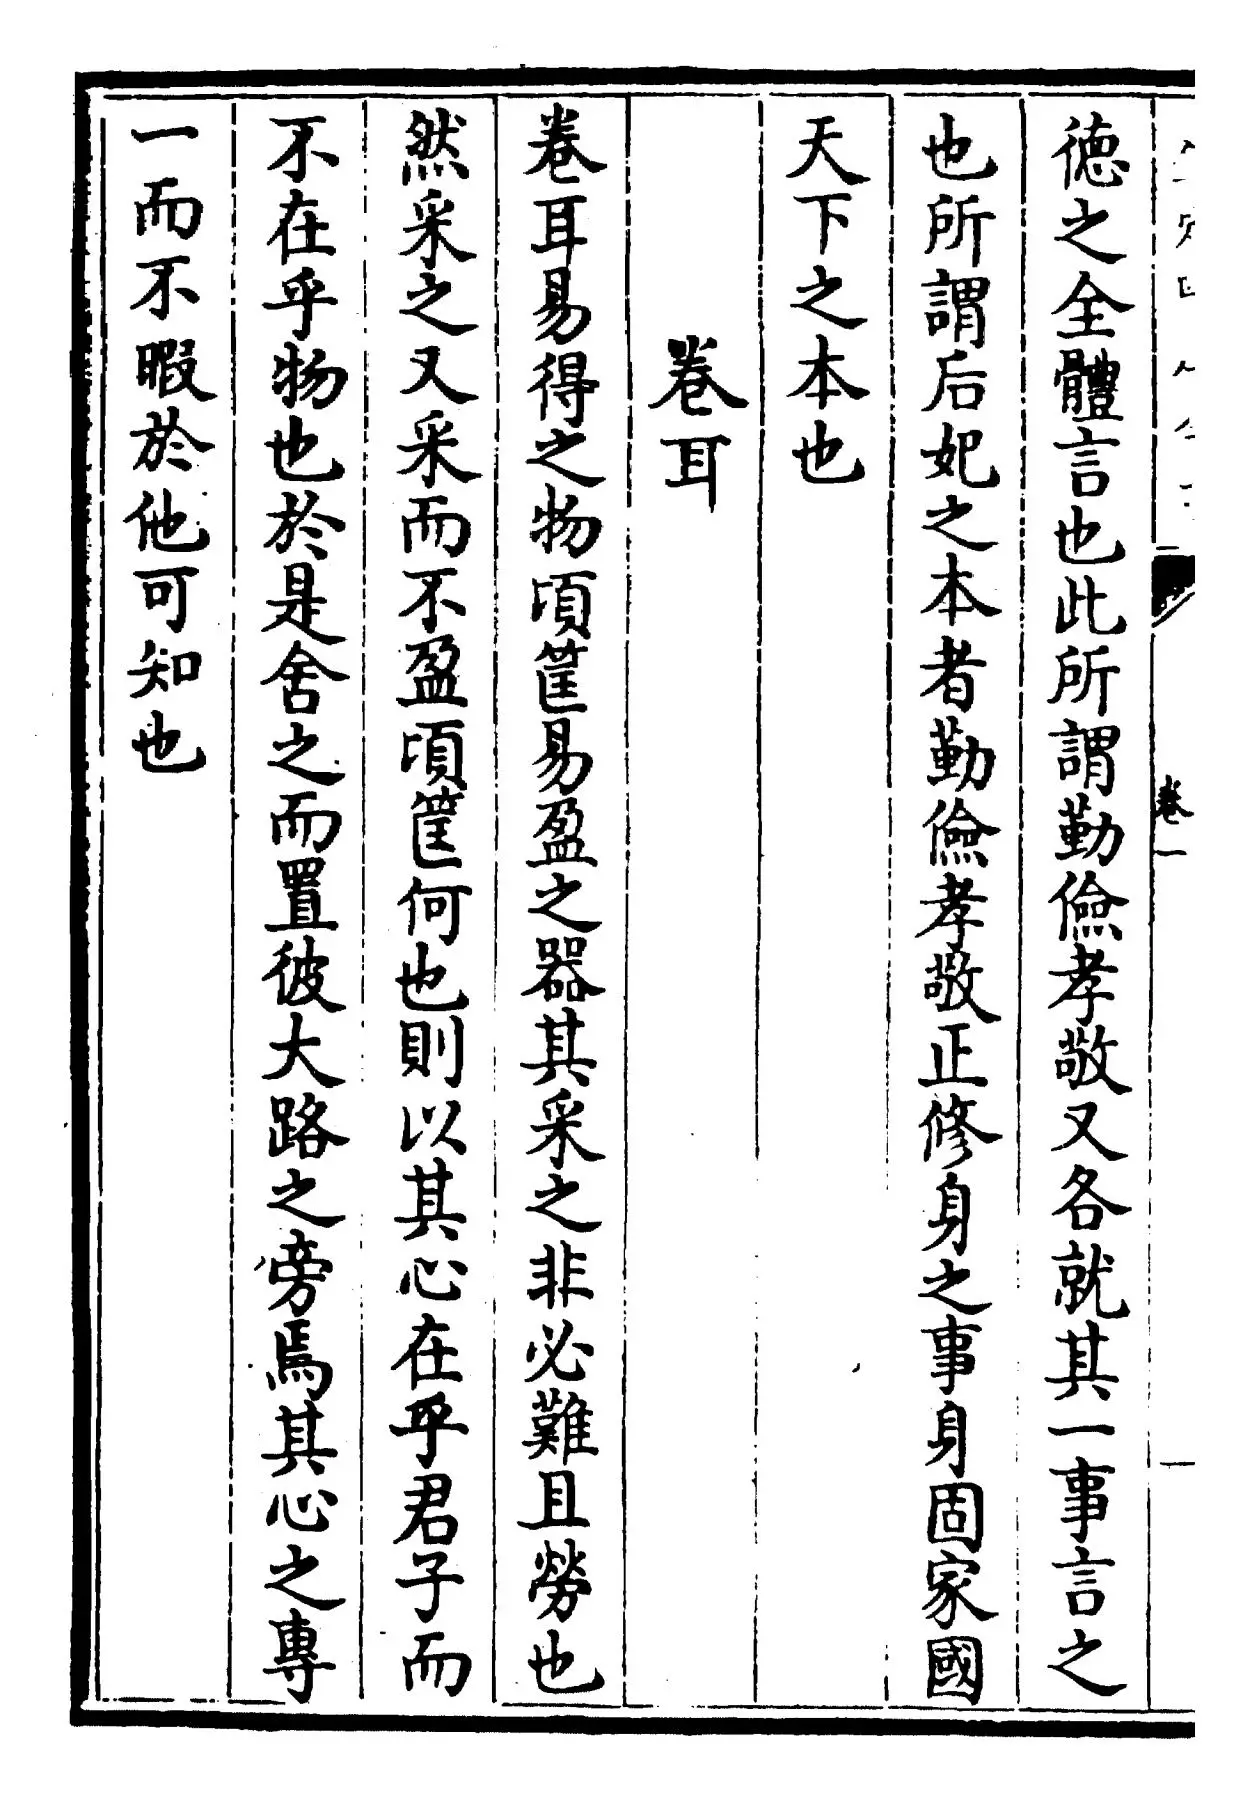 卷一
德之全體言也此所謂勤儉孝敬又各就其一事言之
也所謂后妃之本者勤儉孝敬正修身之事身固家國
天下之本也
卷耳
卷耳易得之物頃筐易盈之器其采之非必難且勞也
然采之又采而不盈頃筐何也則以其心在乎君子而
不在乎物也於是舍之而置彼大路之旁焉其心之專
一而不暇於他可知也